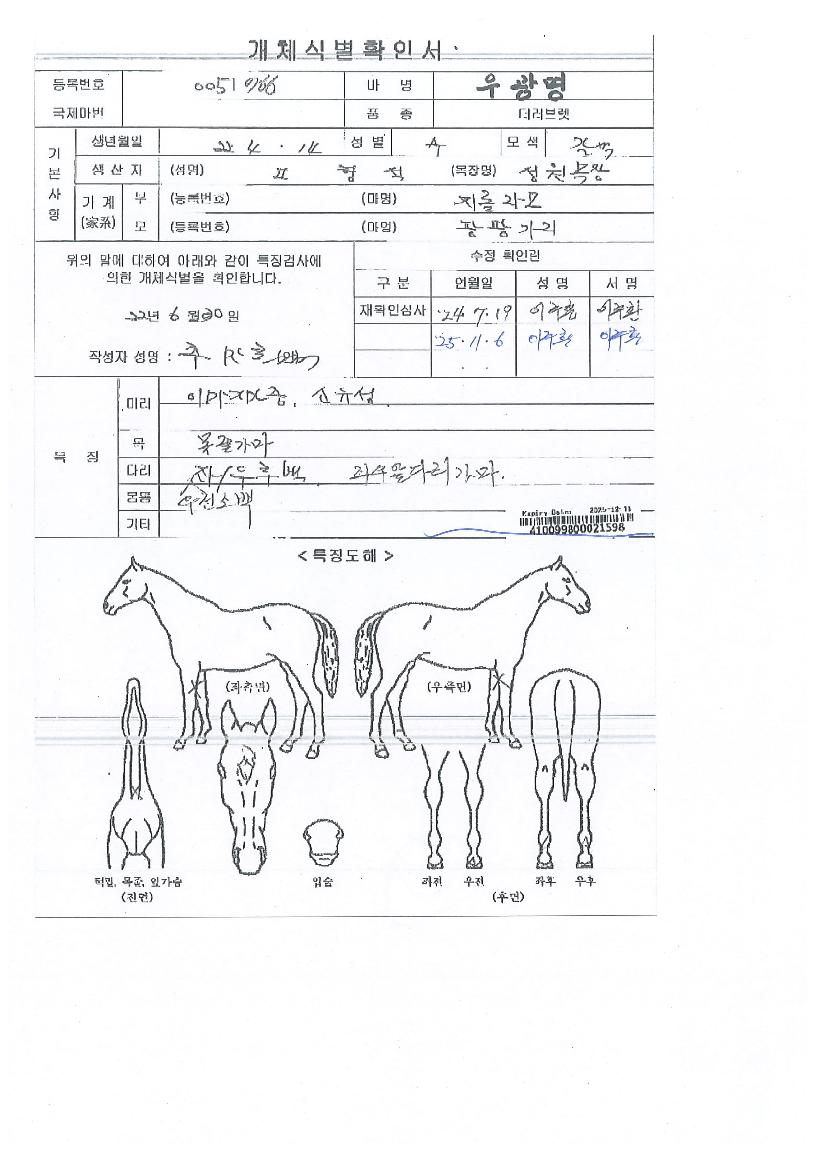 개체식별확인서
등록번호 0051966 마 명 우광명
국제마번 품 종 더러브렛
기본사항
생년월일 22. 4. 14 성별 모색
생산자 (성명) (목장명) 성원목장
기계(家系) 부 (등록번호) (마명)
모 (등록번호) (마명) 팡팡가리
위의 말에 대하여 아래와 같이 특징검사에
의한 개체식별을 확인합니다.
22년 6월 30일
작성자 성명 :
수정 확인란
구 분 연월일 성 명 서 명
재확인심사 '24 7. 19 이주환 이주환
'25. 11. 6 이주환 이주환
특 징
머리
목 목줄가마
다리 좌우앞다리가마.
몸통
기타
Expiry Date: 2025-12-11
410099800021598
<특징도해>
(좌측면)
(우측면)
턱밑, 목줄, 앞가슴
(전면)
입술
좌전 우전 좌후 우후
(후면)